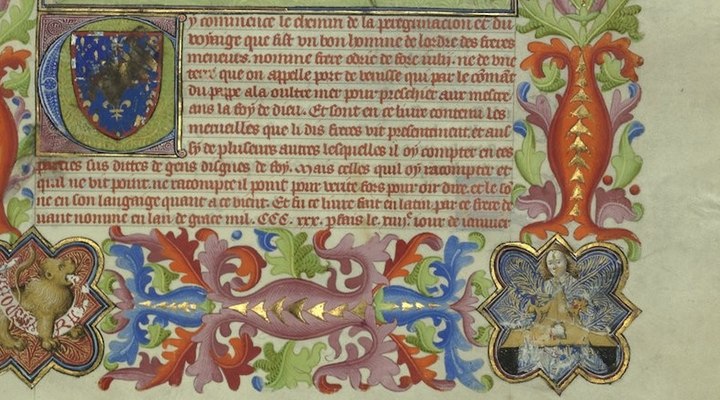 Cy commence le chemin de la peregrinacion et du
voyaige que fist vn bon homme de lordre des freres
meneurs. nomme frere odric de foro iulij. ne de vne
terre que on appelle port de venisse qui par le cōmāt
du pape ala oultre mer pour preschier aux mescre
ans la foy de dieu. Et sont en ce liure contenu les
merueilles que li dis freres vit presentement. et auf
sy de pluseurs autres lesquelles il oy compter en ces
parties sus dittes de gens dignes de foy. Mais celles quil oy racompter et
quil ne vit point. ne racompte il point pour verite fors pour oir dire. et le so
ne en son langaige quant a ce vient. Et fu ce liure fait en latin par ce frere de
uant nomme en lan de grace mil. CCC. xxx. pfais le xiiij. iour de ianuier